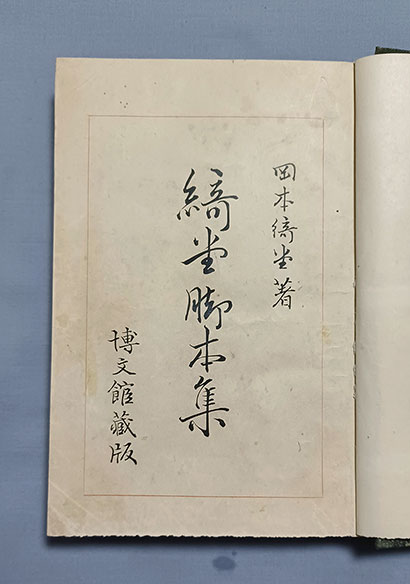 岡本綺堂著
綺堂脚本集
博文館藏版